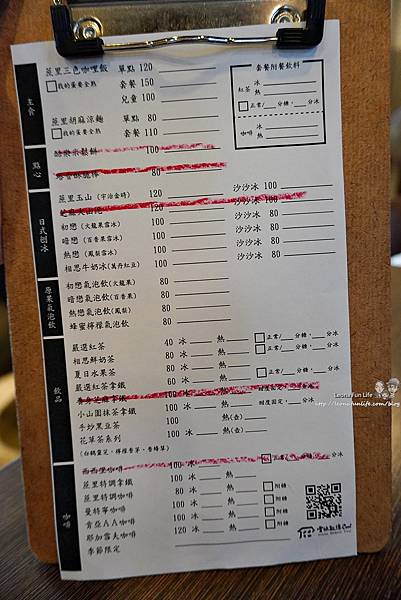 主食
蔗里三色咖哩飯 單點 120
我的蛋要全熟 套餐 150
兒童 100
蔗里胡麻涼麵 單點 80
我的蛋要全熟 套餐 110
套餐附餐飲料
紅茶 冰 熱
正常/ 分糖, 分冰
咖啡 冰 熱
點心
100
80
日式刨冰
蔗里玉山(宇治金時) 120 沙沙冰 100
120 沙沙冰 100
初戀(火龍果雪冰) 100 沙沙冰 80
暗戀(百香果雪冰) 100 沙沙冰 80
熱戀(鳳梨雪冰) 100 沙沙冰 80
相思牛奶冰(萬丹紅豆) 100 沙沙冰 80
原果氣泡飲
初戀氣泡飲(火龍果) 80
暗戀氣泡飲(百香果) 80
熱戀氣泡飲(鳳梨) 80
蜂蜜檸檬氣泡飲 80
飲品
嚴選紅茶 40 冰 熱 正常/ 分糖, 分冰
相思鮮奶茶 80 冰 熱 正常/ 分糖, 分冰
夏日水果茶 80 冰
嚴選紅茶拿鐵 60 冰 熱 正常/ 分糖, 分冰
100 冰 熱 甜度固定, 分冰
小山園抹茶拿鐵 100 冰 熱 甜度固定, 分冰
手炒黑豆茶 100 熱(壺)
花草茶系列 100 熱(壺)
咖啡
西西里咖啡 100 冰 正常/ 分糖, 分冰
蔗里特調拿鐵 100 冰 熱 附糖
蔗里特調咖啡 80 冰 熱 附糖
曼特寧咖啡 100 冰 熱 附糖
肯亞AA咖啡 100 冰 熱 附糖
耶加雪夫咖啡 100 冰 熱 附糖
季節限定 120 冰 熱
Leona Fun Life